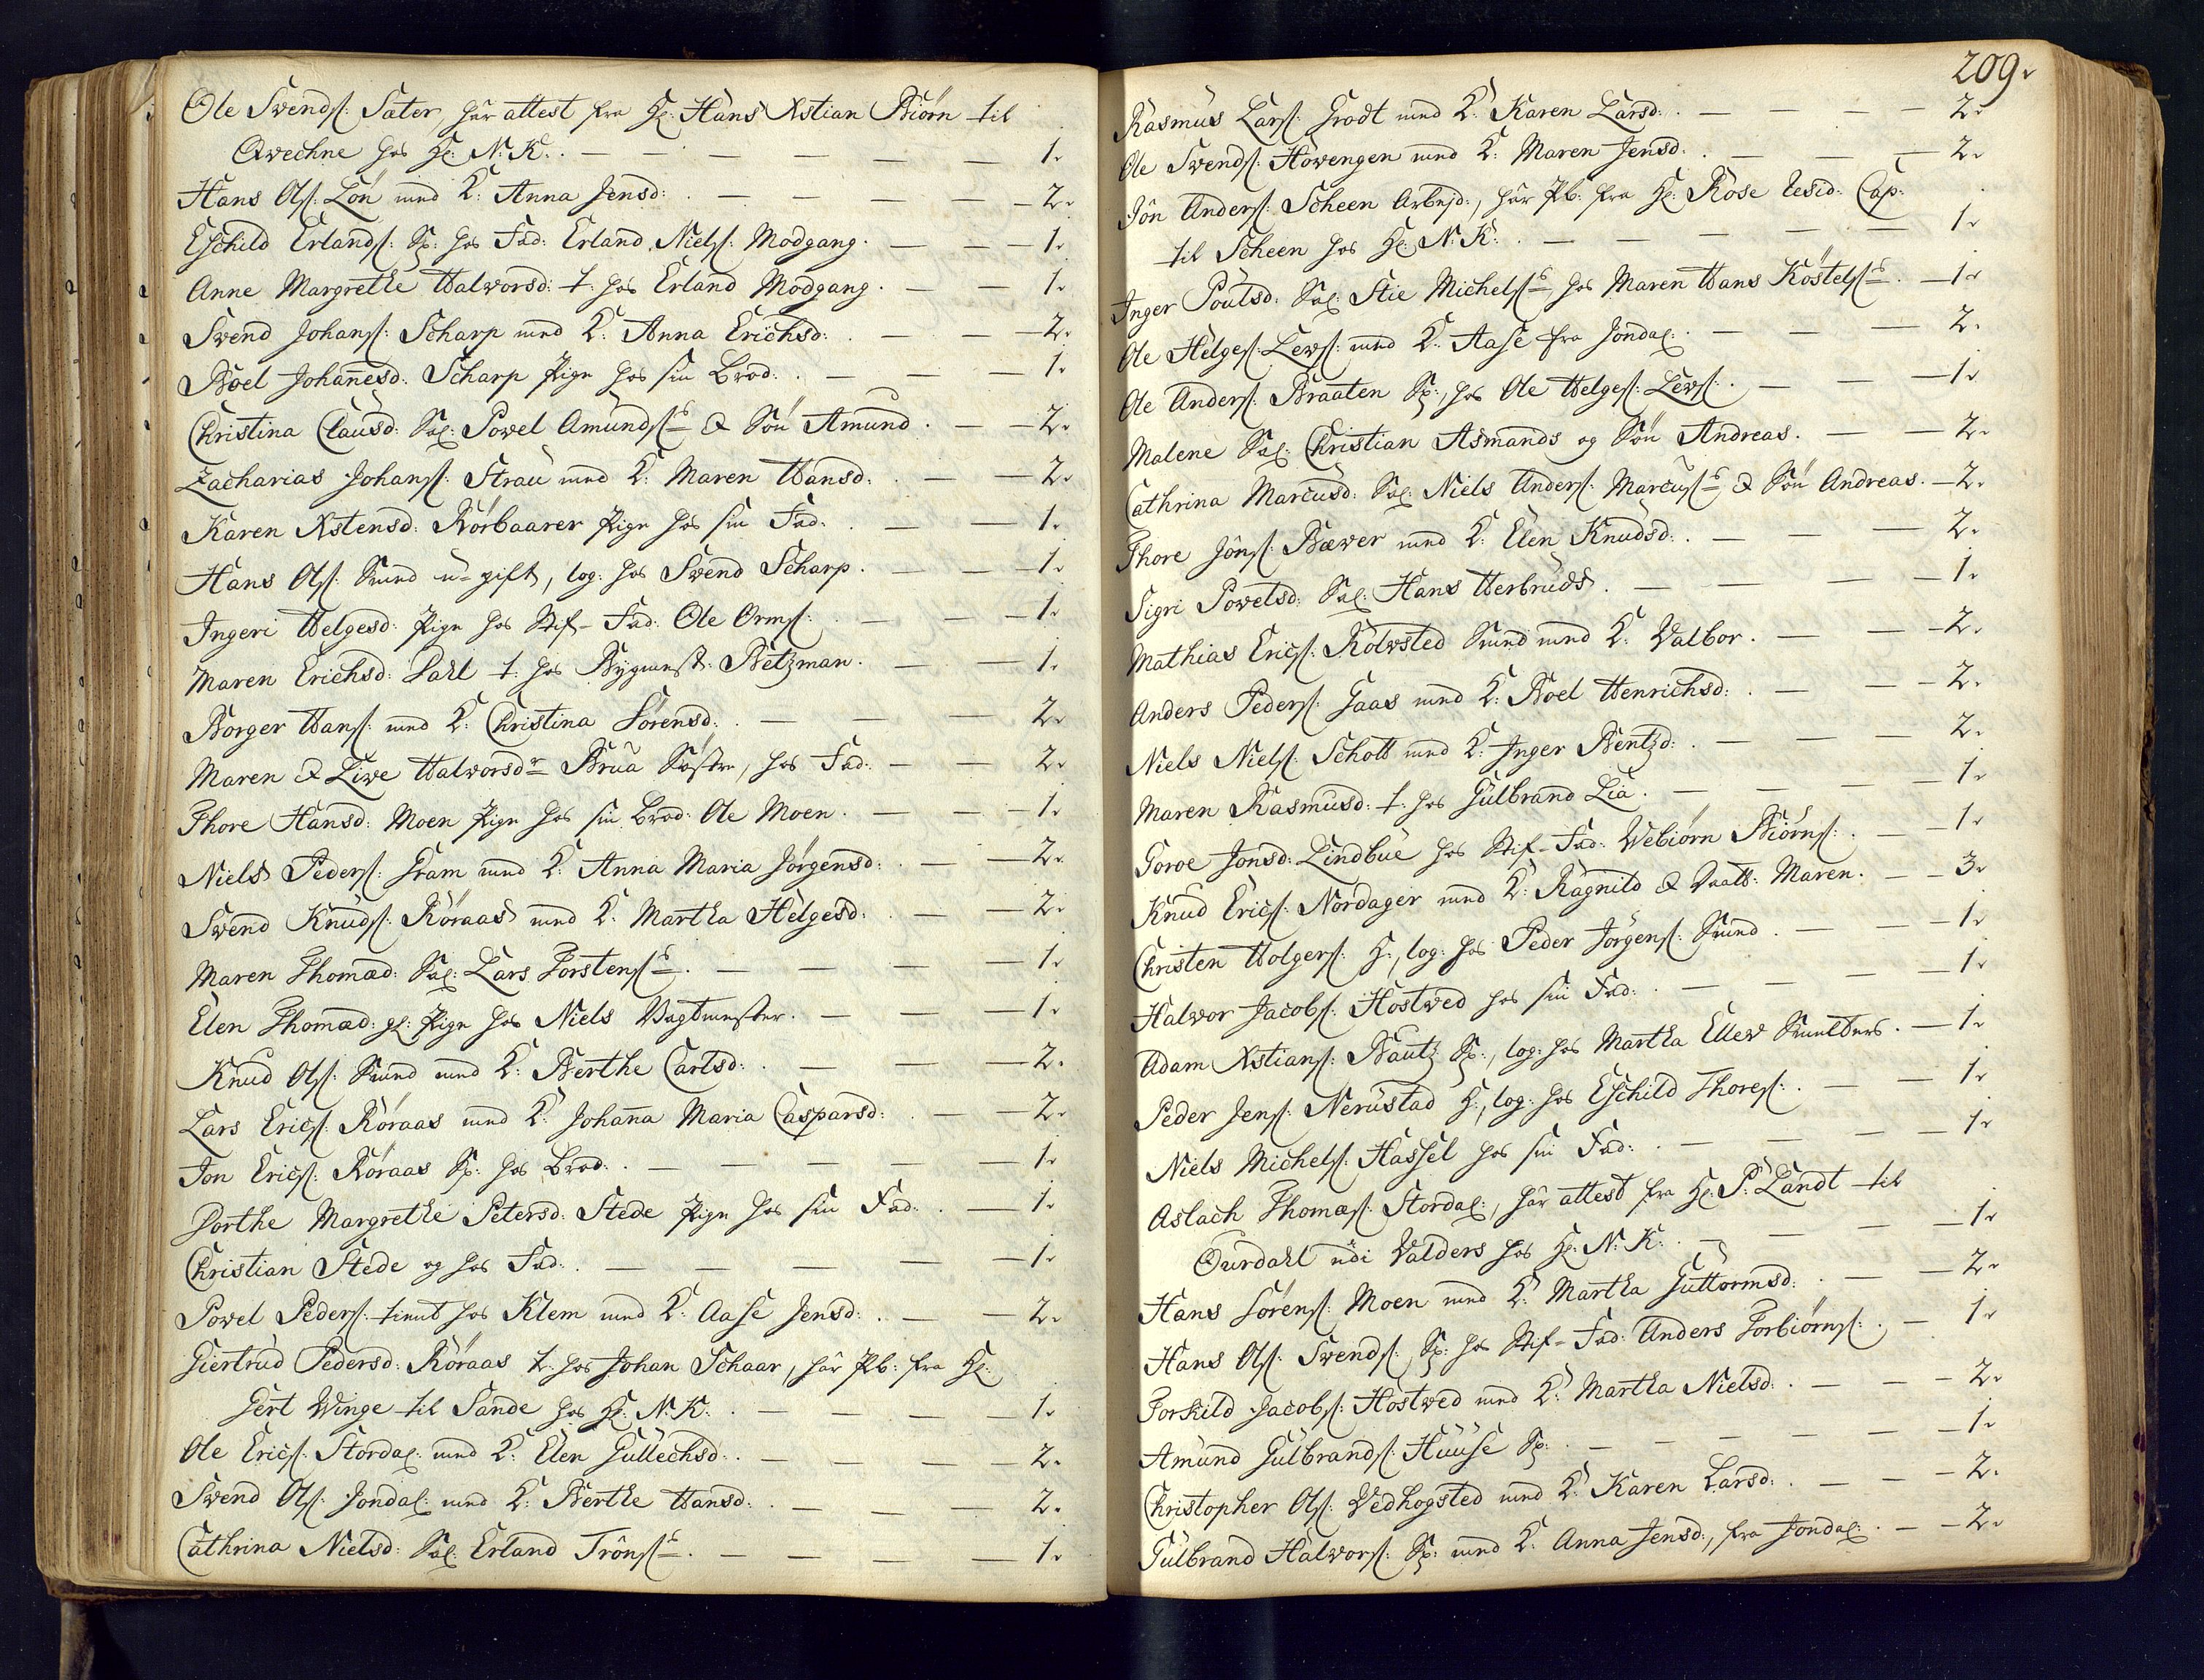 Ole Svends: Sater, har attest fra Hr: Hans Xstian Biörn til
Qvechne hos Hr: N: K: . — — — — — — 1.
Hans Ols: Lön med K: Anna Jensd: . — — — — 2.
Eschild Erlands: Sp: hos Fad: Erland Niels: Modgang . — — 1.
Anne Margrethe Halvorsd: t: hos Erland Modgang . — — 1.
Svend Johans: Scharp med K: Anna Erichsd: . — — 2.
Boel Johañesd: Scharp Pige hos sin Brod: . — — — 1.
Christina Clausd: Sal: Powel Amunds: & Sön Amund . — 2.
Zacharias Johans: Strau med K: Maren Hansd: . — — 2.
Karen Xstensd: Rörbaarer Pige hos sin Fad: . — — 1.
Hans Ols: Smed u-gift, log: hos Svend Scharp . — — 1.
Ingeri Helgesd: Pige hos Stif-Fad: Ole Orms: . — — 1.
Maren Erichsd: Dahl t: hos Bygmest: Betzman . — — 1.
Borger Hans: med K: Christina Sörensd: . — — — 2.
Maren & Live Halvorsd: Brua Söstre, hos Fad: — — 2.
Thore Hansd: Moen Pige hos sin Brod: Ole Moen . — — 1.
Niels Peders: Gram med K: Anna Maria Jörgensd: . — — 2.
Svend Knuds: Röraas med K: Martha Helgesd: . — — 2.
Maren Thomæd: Sal: Lars Torstens: . — — — — 1.
Elen Thomæd: gl: Pige hos Niels Vagtmester . — — — 1.
Knud Ols: Smed med K: Berthe Carlsd: . — — — 2.
Lars Erics: Röraas med K: Johaña Maria Caspersd: . — — 2.
Jon Erics: Röraas Sp: hos Brod: . — — — — — 1.
Dorthe Margrethe Petersd: Stede Pige hos sin Fad: . — 1.
Christian Stede og hos Fad: . — — — — — 1.
Powel Peders: tient hos Klem med K: Aase Jensd: . — — 2.
Giertrud Pedersd: Röraas t: hos Johan Schaar, har Pb: fra Hr:
Gert Winge til Sande hos Hr: N: K: . — — — — 1.
Ole Erics: Stordal: med K: Elen Gullechsd: . — — — 2.
Svend Ols: Jondal: med K: Berthe Hansd: . — — — 2.
Cathrina Nielsd: Sal: Erland Tröns: . — — — — 1.
209.
Rasmus Lars: Grodt med K: Karen Larsd: . — — — 2.
Ole Svends: Hovengen med K: Maren Jensd: . — — — 2.
Jön Anders: Scheen Arbejd:, har Pb: fra Hr: Rose Resid: Cap:
til Scheen hos Hr: N: K: . — — — — — 1.
Inger Poulsd: Sal: Stie Michels: hos Maren Hans Köstels: . — 1.
Ole Helges: Lews: med K: Aase fra Jondal: . — — — 2.
Ole Anders: Braaten Sp:, hos Ole Helges: Lews: . — — 1.
Malene Sal: Christian Asmands og Sön Andreas . — — 2.
Cathrina Marcusd: Sal: Niels Anders: Marcus: & Sön Andreas . — 2.
Thore Jöns: Bæver med K: Elen Knudsd: . — — — 2.
Sigri Powelsd: Sal: Hans Herbruds . — — — — 1.
Mathias Erics: Kolvsted Smed med K: Valbor . — — 2.
Anders Peders: Gaas med K: Boel Henrichsd: . — — 2.
Niels Niels: Schott med K: Inger Bentzd: . — — — 2.
Maren Rasmusd: t: hos Gulbrand Lia . — — — — 1.
Goroe Jonsd: Lindbue hos Stif-Fad: Vebiörn Biörns: . — 1.
Knud Erics: Nordager med K: Ragnild & Daatt: Maren . — 3.
Christen Holgers: H:, log: hos Peder Jörgens: Smed . — — 1.
Halvor Jacobs: Hostved hos sin Fad: . — — — — 1.
Adam Xstians: Bautz Sp:, log: hos Martha Ellev Smelters . — 1.
Peder Jens: Nerustad H:, log: hos Eschild Thores: . — — 1.
Niels Michels: Hassel hos sin Fad: . — — — — 1.
Aslach Thomæs: Stordal:, har attest fra Hr: P: Landt til
Ourdahl udi Valders hos Hr: N: K: . — — — — 1.
Hans Sörens: Moen med K: Martha Guttormsd: . — — 2.
Hans Ols: Svends: Sp: hos Stif-Fad: Anders Torbiörns: . — 1.
Torkild Jacobs: Hostved med K: Martha Nielsd: . — — 2.
Amund Gulbrands: Huuse Sp: . — — — — — 1.
Christopher Ols: Vedhogsted med K: Karen Larsd: . — — 2.
Gulbrand Halvors: Sp: med K: Anna Jensd:, fra Jondal: . — 2.